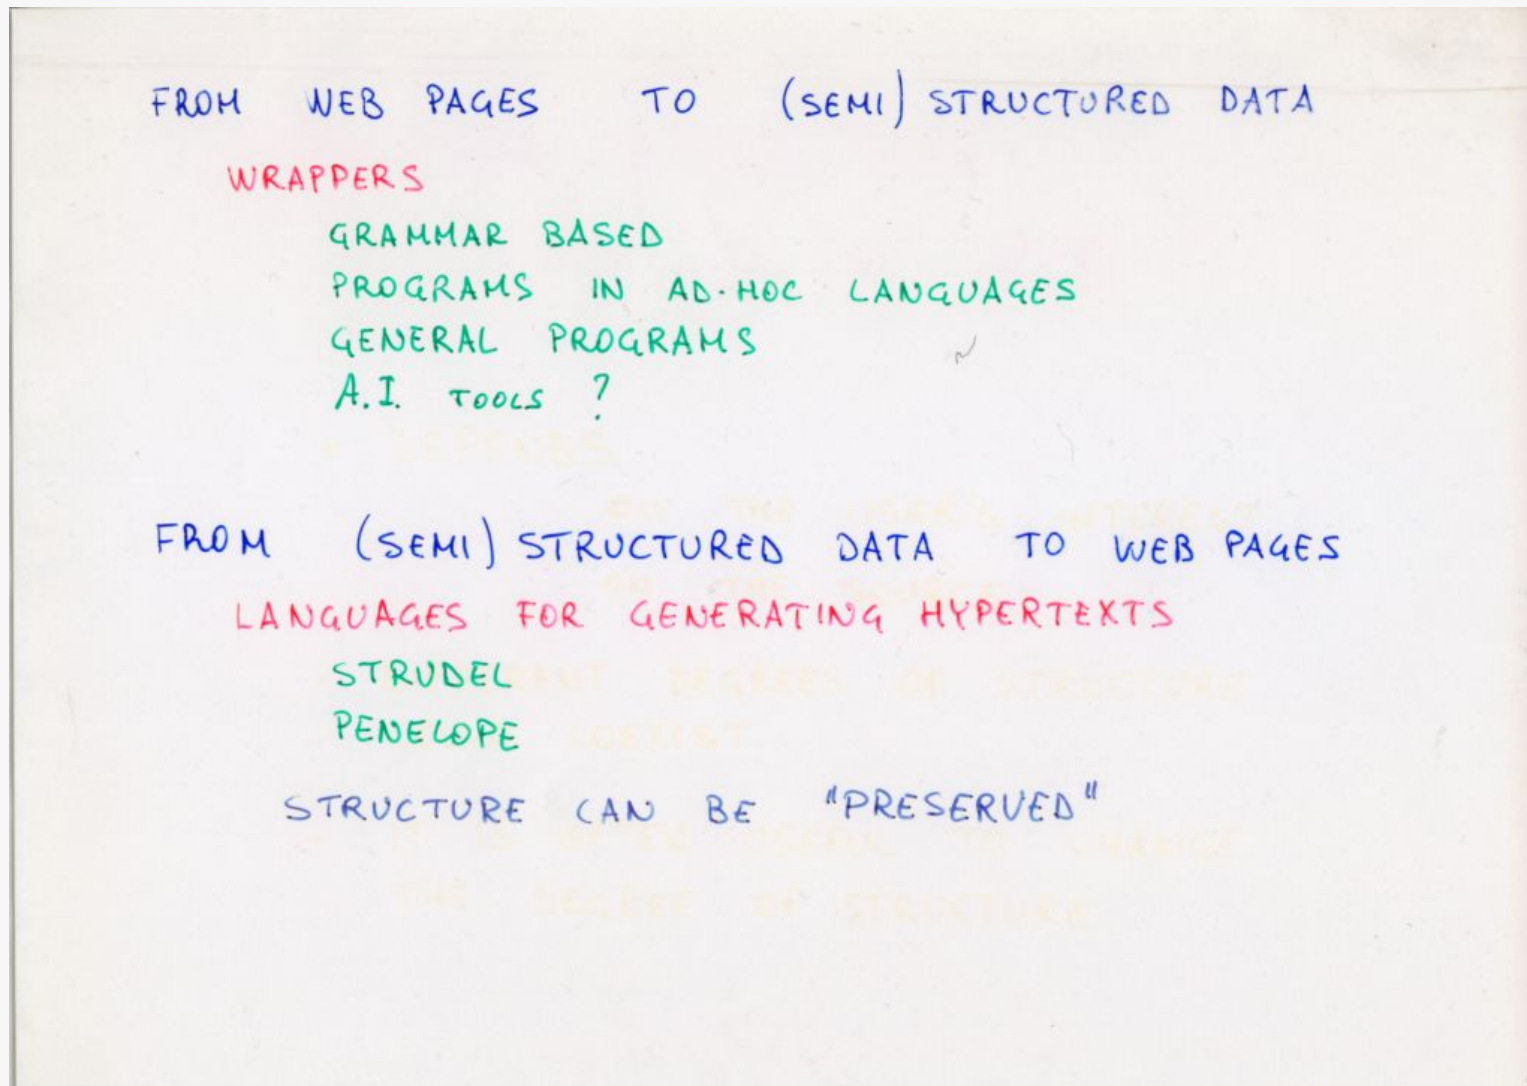 FROM WEB PAGES TO (SEMI) STRUCTURED DATA
WRAPPERS
GRAMMAR BASED
PROGRAMS IN AD-HOC LANGUAGES
GENERAL PROGRAMS
A.I. TOOLS ?
FROM (SEMI) STRUCTURED DATA TO WEB PAGES
LANGUAGES FOR GENERATING HYPERTEXTS
STRUDEL
PENELOPE
STRUCTURE CAN BE "PRESERVED"